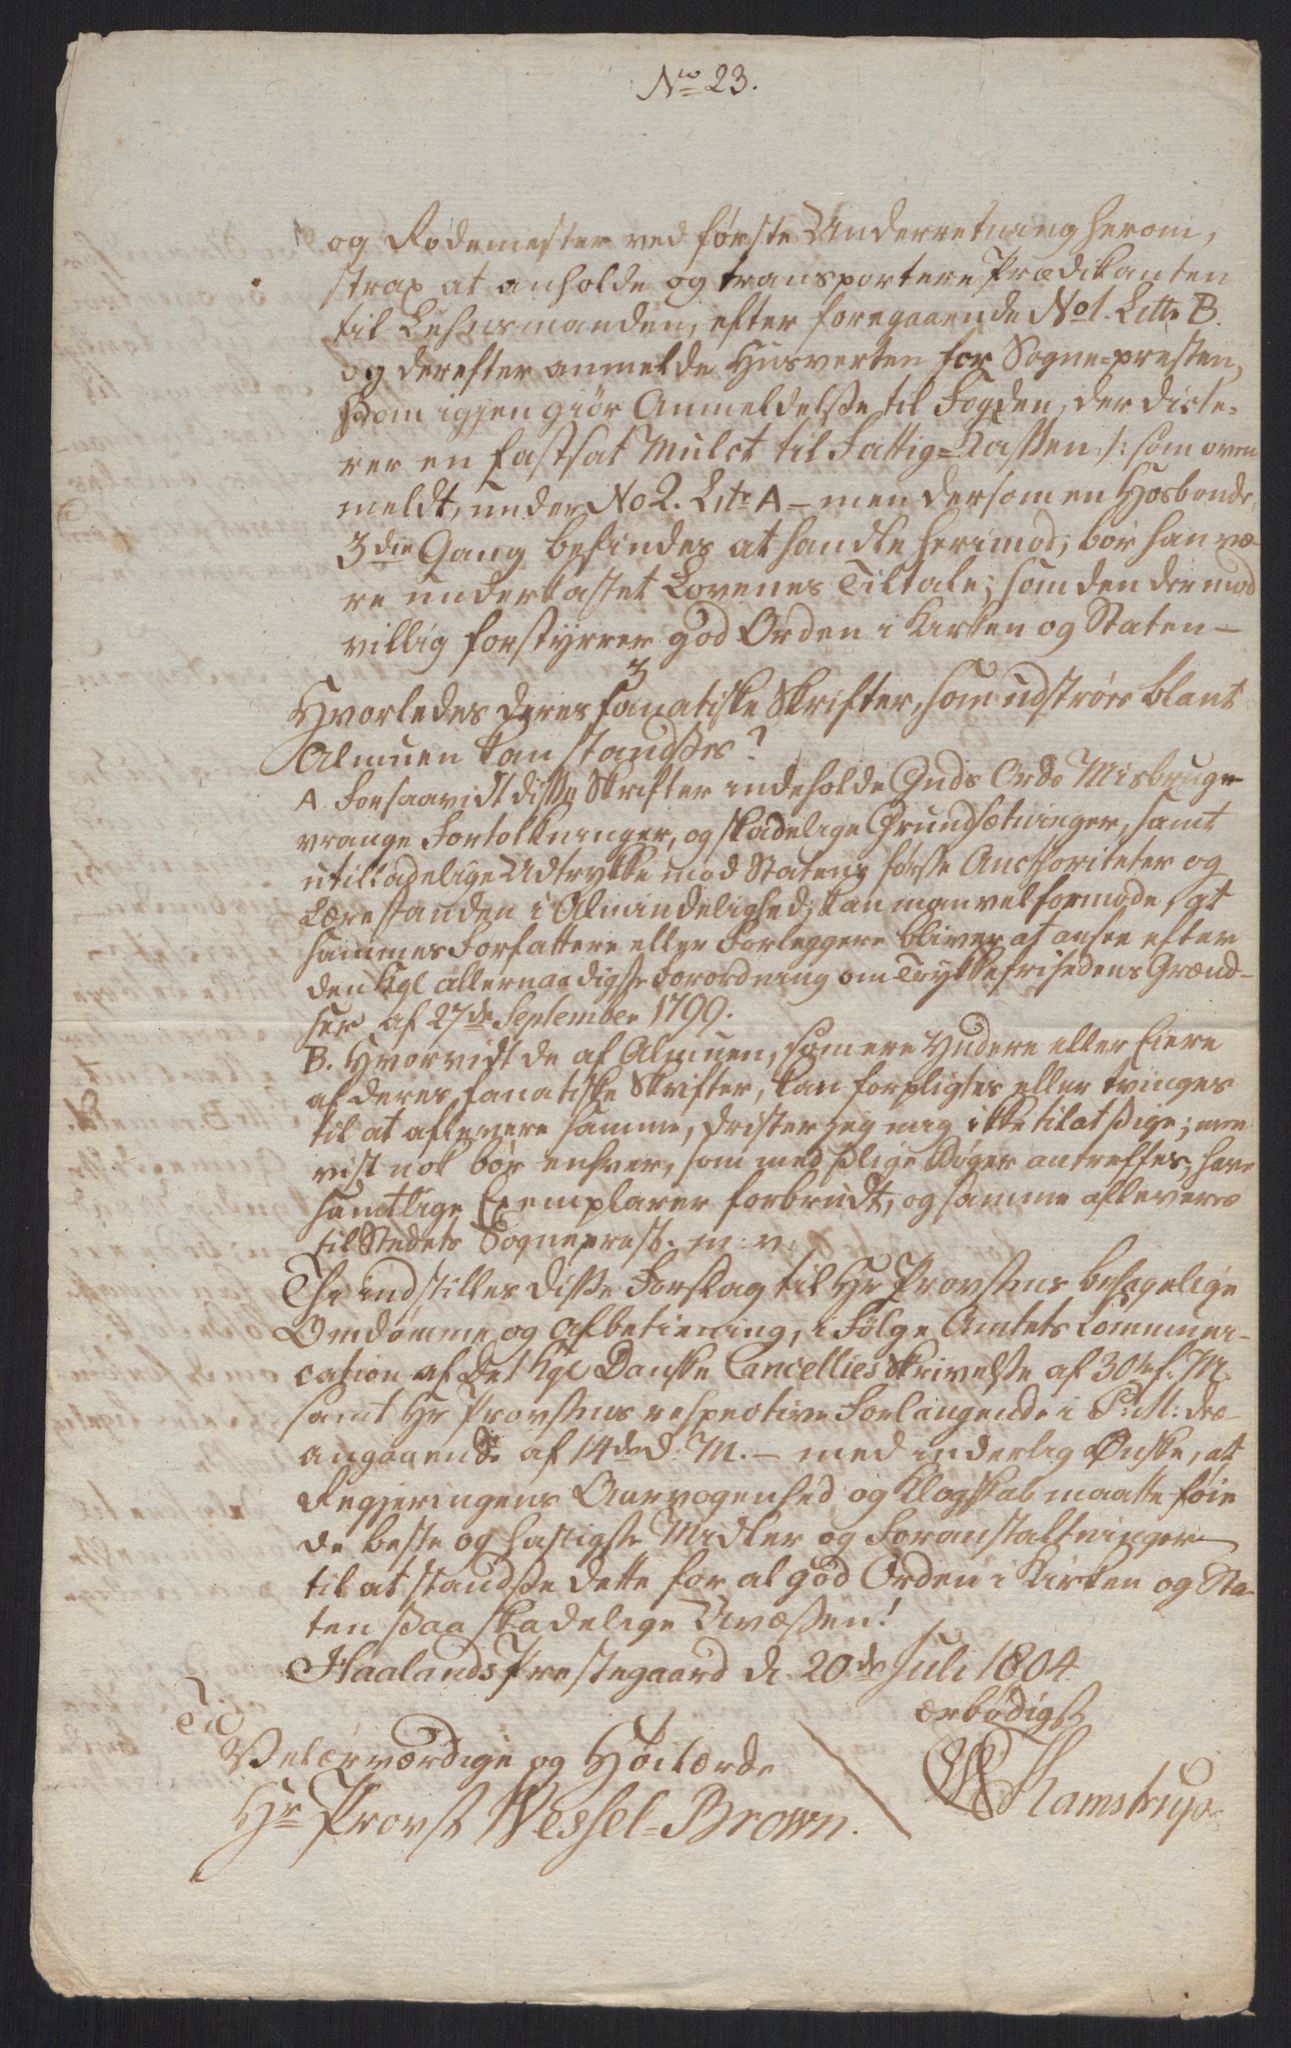 No 23.
og Rodemester ved første Underretning herom,
strax at anholde og transportere Prædikanten
til Lehnsmanden, efter foregaaende No1. Littr B.
og derefter anmelde Husverten for Sogne=presten,
som igjen giør Anmeldelse til Fogden, der dicte=
rer en fastsat Mulct til Fattig=Kassen /: som oven
meldt, under No2. Litr A – men dersom en Hosbonde,
3die Gang befindes at handle herimod, bør han væ-
re underkastet Lovenes Tiltale; som den der mod
villig forstyrrer god Orden i Kirken og Staten –
3
Hvorledes deres fanatiske Skrifter, som udstrøes blant
Almuen kan standses?
A. Forsaavidt disse Skrifter indeholde Guds Ords Misbruge
vrange Fortolkninger, og skadelige Grundsætninger, samt
utilladelige Udtrykke mod Statens første Aucthoriteter og
Lærestanden i Almindelighed; kan man vel formode, at
sammes Forfattere eller Forleggere bliver at ansee efter
den Kgl allernaadigste Forordning om Trykkefrihedens Grænd-
ser af 27de September 1799.
B. Hvorvidt de af Almuen, som ere Yndere eller Eiere
af deres fanatiske Skrifter, kan forpligtes eller tvinges
til at aflevere samme, drister jeg mig ikke til at sige; men
vist nok bør enhver, som med slige Bøger antreffes, have
samtlige Exemplarer forbrudt, og samme afleveres
til Stedets Sogneprest. m: v.
Thi indstilles disse Forslag til Hr Provstens behagelige
Omdømme og Afbetiening, i Følge Amtets Commun-
cation af Det Kgl Danske Cancellies Skrivelse af 30te f. M.
samt Hr Provstens respective Forlangende i P: M: des-
angaaende af 14de d. M. – med inderlig Ønske, at
Regjeringens Aarvogenhed og Klogskab maatte føie
de beste og hastigste Midler og Foranstaltninger
til at standse dette for al god Orden i Kirken og Sta-
ten saa skadelige Uvæsen!
Haalands Prestegaard d. 20de Juli 1804
ærbødigst
Kamstrup
Til
Velærværdige og Høilærde
Hr Provst Wessel=Brown.